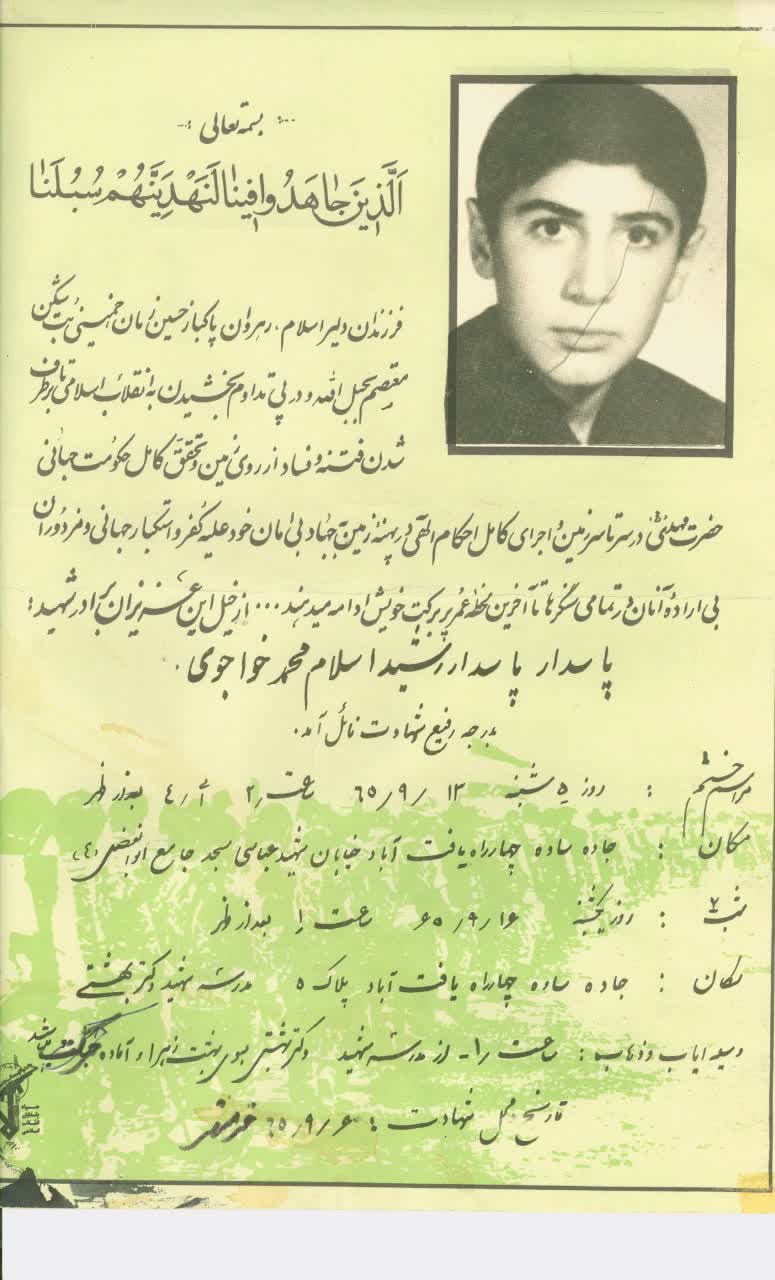 بسمه تعالی
اَلَّذینَ جاهَدُوافینالَنَهْدِیَنَّهُمْ سُبُلَنا
فرزندان دلیر اسلام، رهروان پاکباز حسین زمان خمینی بت شکن
معتصم بحبل الله و در پی تداوم بخشیدن به انقلاب اسلامی تا برطرف
شدن فتنه و فساد از روی زمین و تحقق کامل حکومت جهانی
حضرت مهدی در سرتاسر زمین و اجرای کامل احکام الهی در پهنه زمین به جهاد بی امان خود علیه کفر و استکبار جهانی و مزدوران
بی اراده آنان در تمامی سنگرها تا آخرین لحظه عمر پر برکت خویش ادامه میدهند... از خیل این عزیزان برادر شهید:
پاسدار پاسدار رشید اسلام محمد خواجوی.
بدرجه رفیع شهادت نائل آمد.
مراسم ختم : روز ۵ شنبه ۶۵/۹/۱۳ ساعت ۲ الی ۴ بعداز ظهر
مکان : جاده ساوه چهارراه یافت آباد خیابان شهید عباسی مسجد جامع ابوالفضل (ع)
شب ۷ : روز یکشنبه ۶۵/۹/۱۶ ساعت ۱ بعداز ظهر
مکان : جاده ساوه چهارراه یافت آباد پلاک ۵ مدرسه شهید دکتر بهشتی
وسیله ایاب و ذهاب : ساعت ۱- از مدرسه شهید دکتر بهشتی بسوی بهشت زهرا آماده حرکت می باشد
تاریخ و محل شهادت : ۶۵/۹/۶